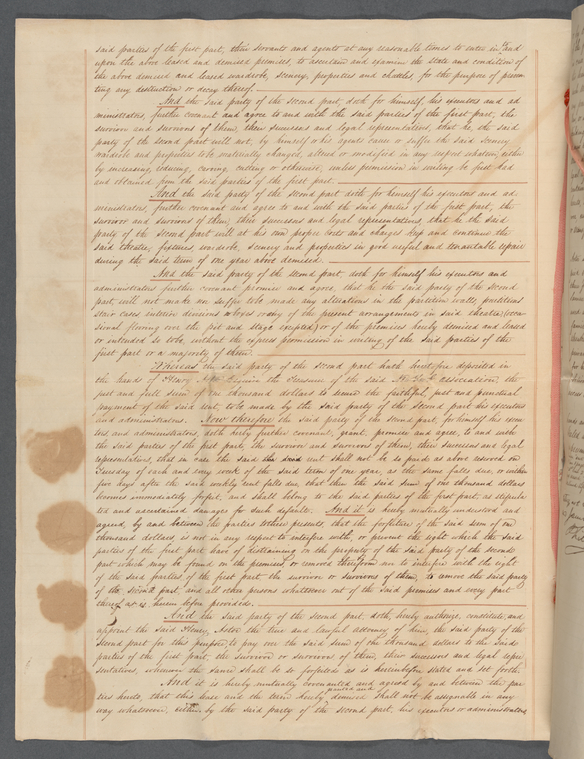 said parties of the first part, their servants and agents at any reasonable times to enter in and
upon the above leased and demised premises, to ascertain and examine the state and condition of
the above demised and leased wardrobe, scenery, properties and chattles, for the purpose of preven
ting any destruction or decay thereof.
And the said party of the second part doth for himself, his executors and ad
ministrators, further covenant and agree to and with the said parties of the first part, the
survivor and survivors of them, their successors and legal representatives, that he, the said
party of the second part will not, by himself or his agents cause or suffer the said scenery
wardrobe and properties to be materially changed, altered or modified in any respect whatever, either
by increasing, reducing, carving, cutting or otherwise, unless permission in writing be first had
and obtained from the said parties of the first part.
And the said party of the second part doth for himself his executors and ad
ministrators, further covenant and agree to and with the said parties of the first part, the
survivor and survivors of them, their successors and legal representatives, that he the said
party of the second part will at his own proper costs and charges keep and continue the
said theatre, fixtures, wardrobe, scenery and properties in good useful and tenantable repair
during the said term of one year above demised.
And the said party of the second part doth for himself, his executors and
administrators further covenant promise and agree, that he the said party of the second
part, will not make or suffer to be made any alterations in the partition walls, partitions
stair cases interior divisions or any of the present arrangements in said theatre (occa
sional flooring over the pit and stage excepted) or of the premises hereby demised and leased
or intended so to be, without the express permission in writing of the said parties of the
first part or a majority of them.
Whereas the said party of the second part hath heretofore deposited in
the hands of Henry the Treasurer of the said association, the
just and full sum of one thousand dollars to secure the faithful, just and punctual
payment of the said rent, to be made by the said party of the second part his executors
and administrators. Now therefore the said party of the second part, for himself his execu
tors, and administrators doth hereby further covenant, grant, promise and agree, to and with
the said parties of the first part, the survivor and survivors of them, their successors and legal
representatives, that in case the said rent shall not be so paid as above reserved on
Tuesday of each and every week of the said term of one year, as the same falls due, or within
five days after the said weekly rent falls due, that then the said sum of one thousand dollars
becomes immediately forfeit, and shall belong to the said parties of the first part as stipula
ted and ascertained damages for such default. And it is hereby mutually understood and
agreed, by and between the parties to these presents, that the forfeiture of the said sum of one
thousand dollars, is not in any respect to interfere with, or prevent the right which the said
parties of the first part have of distraining on the property of the said party of the second
part which may be found on the premises or removed therefrom nor to interfere with the right
of the said parties of the first part, the survivor or survivors of them, to remove the said party
of the second part, and all other persons whatsoever out of the said premises and every part
thereof as is herein before provided.
And the said party of the second part, doth, hereby authorize, constitute, and
appoint the said Henry, Astor the true and lawful attorney of him, the said party of the
second part for this purpose to pay over the said sum of one thousand dollars to the said
parties of the first part, the survivor or survivors of them, their successors and legal repre
sentatives, whenever the same shall be so forfeited as is hereinbefore stated and set forth.
And it is hereby mutually covenanted and agreed by and between the par
ties hereto, that this lease and the term hereby granted and demised shall not be assignable in any
way whatsoever, either by the said party of the second part, his executors or administrators